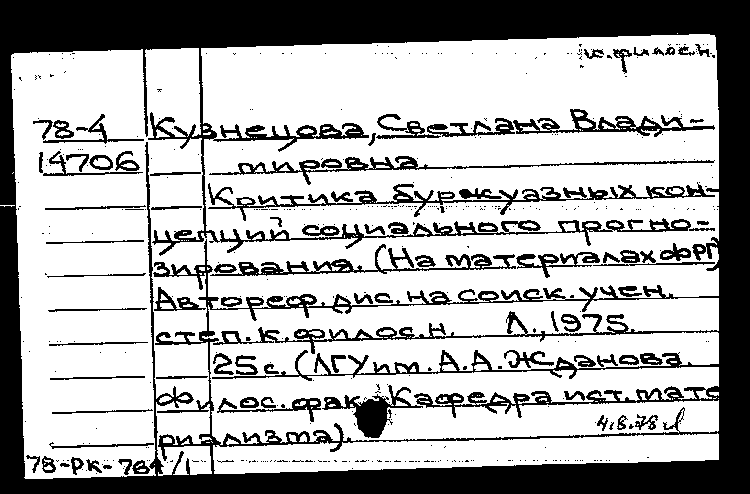 ю.филос.н.
78-4 Кузнецова, Светлана Влади-
14706 мировна.
Критика буржуазных кон-
цепций социального прогно-
зирования. (На материалах ФРГ)
Автореф. дис. на соиск. учен.
степ. к. филос. н. Л., 1975.
25 с. (ЛГУ им. А.А. Жданова.
Филос. фак. Кафедра ист. мате
риализма).
4.8.78
78-РК-764/1